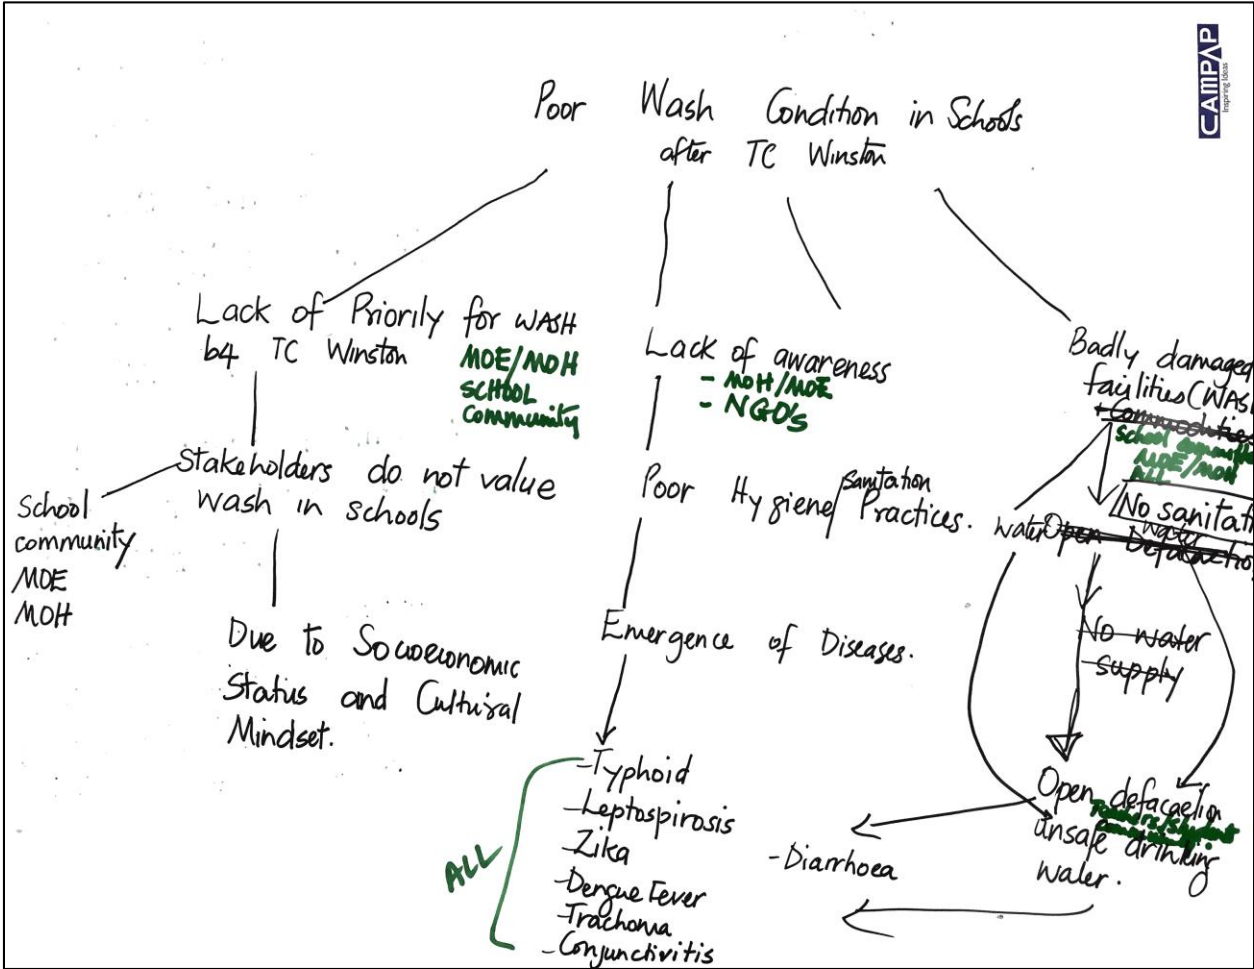 CAMPAP
Inspiring Ideas
Poor Wash Condition in Schools
after TC Winston
Lack of Priority for WASH
b4 TC Winston
MOE/MOH
SCHOOL
Community
Stakeholders do not value
wash in schools
School
community
MOE
MOH
Due to Socioeconomic
Status and Cultural
Mindset.
Lack of awareness
- MOH/MOE
- NGO's
Poor Hygiene/Sanitation Practices.
Emergence of Diseases.
-Typhoid
-Leptospirosis
-Zika
-Dengue Fever
-Trachoma
-Conjunctivitis
ALL
-Diarrhoea
Badly damaged
facilities (WASH
+ Commodities
School
MOE/MOH
ALL
No sanitati
water
water Open Defacation
No water
supply
Open defacaetion
Teachers/student
unsafe drinking
water.